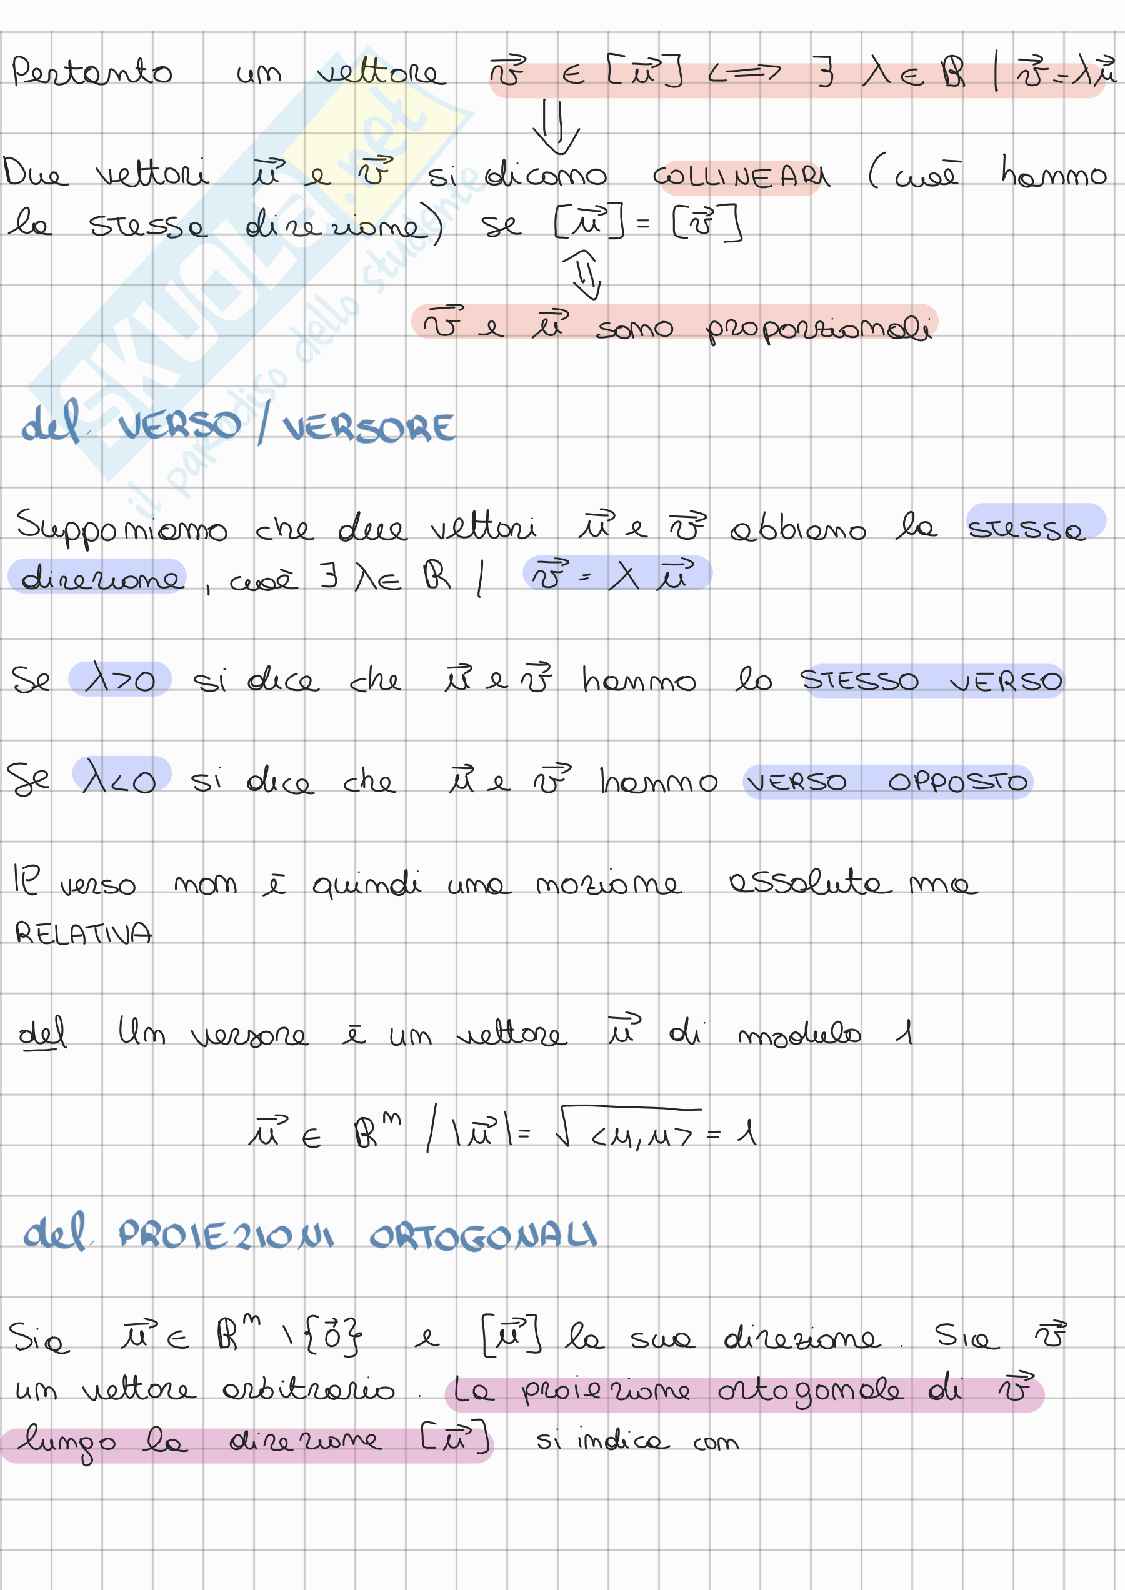 Pertanto un vettore v⃗ ∈ [u⃗] <=> ∃ λ ∈ ℝ | v⃗ = λu⃗
⇓
Due vettori u⃗ e v⃗ si dicono COLLINEARI (cioè hanno
la stessa direzione) se [u⃗] = [v⃗]
⇕
v⃗ e u⃗ sono proporzionali
def. VERSO / VERSORE
Supponiamo che due vettori u⃗ e v⃗ abbiano la stessa
direzione, cioè ∃ λ ∈ ℝ | v⃗ = λ u⃗
Se λ>0 si dice che u⃗ e v⃗ hanno lo STESSO VERSO
Se λ<0 si dice che u⃗ e v⃗ hanno VERSO OPPOSTO
Il verso non è quindi una nozione assoluta ma
RELATIVA
def Un versore è un vettore u⃗ di modulo 1
u⃗ ∈ ℝⁿ / |u⃗| = √<u,u> = 1
def. PROIEZIONI ORTOGONALI
Sia u⃗ ∈ ℝⁿ \ {0⃗} e [u⃗] la sua direzione. Sia v⃗
un vettore arbitrario. La proiezione ortogonale di v⃗
lungo la direzione [u⃗] si indica con
SKUOLA.net
il paradiso dello studente